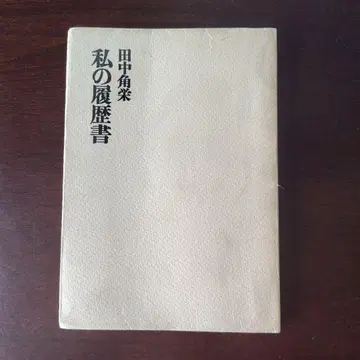 田中角栄
私の履歴書